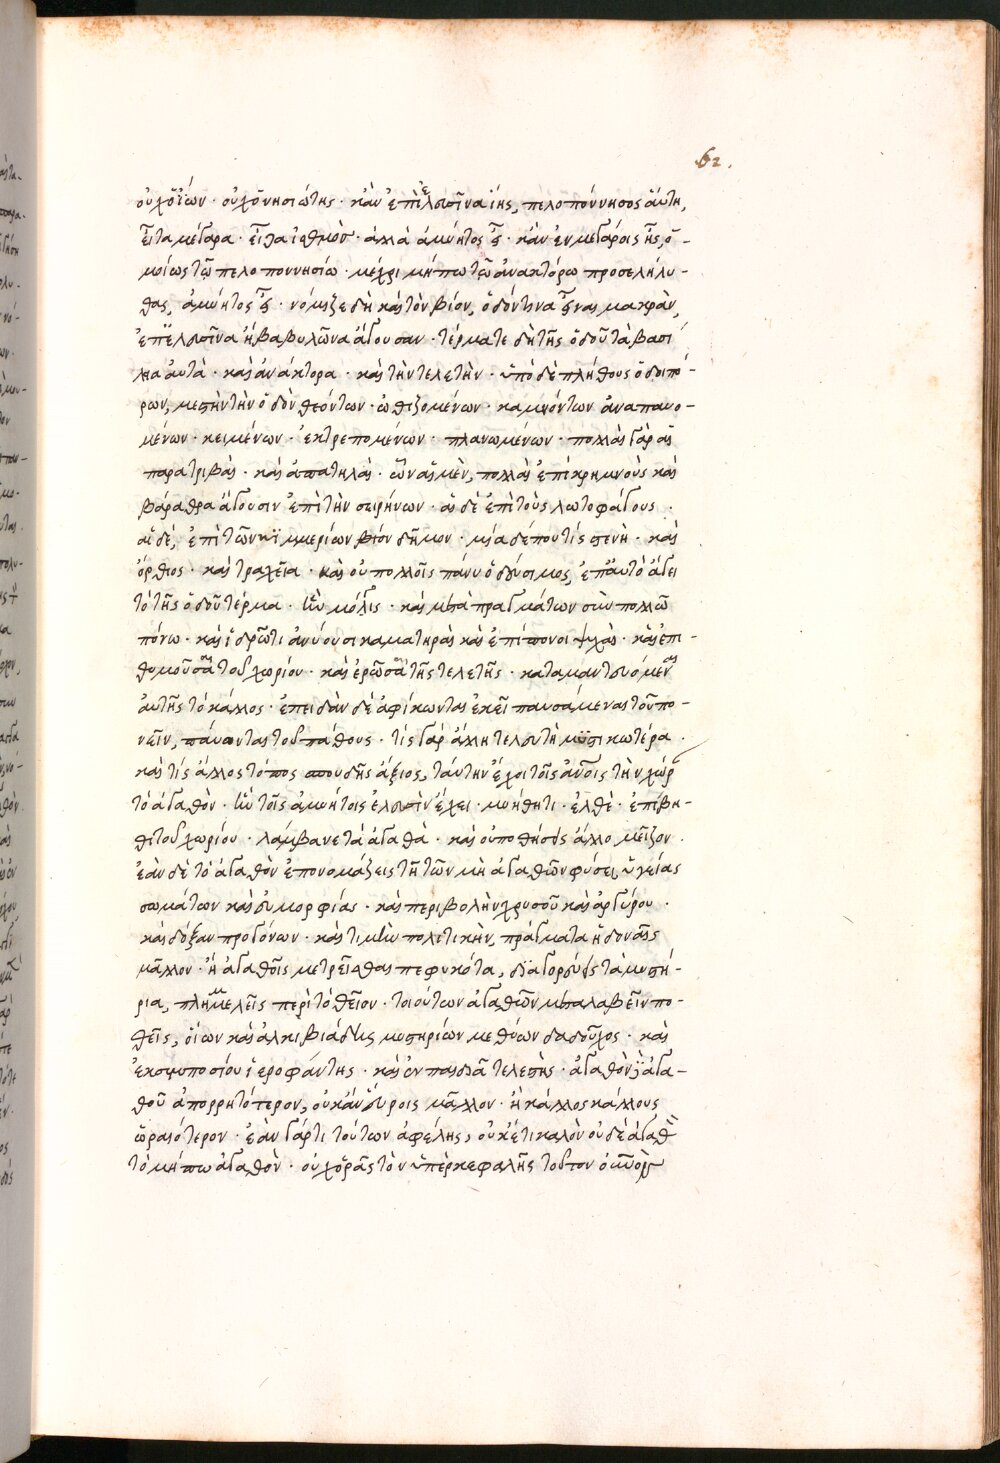 62.
οὐχ ὁ ἴων · οὐχ ὁ νησιώτης · κἂν ἐπὶ ἐλευσῖνα ἴῃς, πελοπόννησος αὕτη,
εἶτα μέγαρα · εἶτα ἰσθμὸν · ἀλλὰ ἀμύητος εἶ · κἂν ἐν μεγάροις ᾖς, ὁ-
μοίως τῷ πελοποννησίῳ · μέχρι μήπω τῷ ἀνακτόρῳ προσελήλυ-
θας, ἀμύητος εἶ · νόμιζε δὴ καὶ τὸν βίον, ὁδόν τινα εἶναι μακρὰν,
ἐπ' ἐλευσῖνα ἢ βαβυλῶνα ἄγουσαν · τέρμα τε δὴ τῆς ὁδοῦ τὰ βασί
λεια αὐτὰ · καὶ ἀνάκτορα · καὶ τὴν τελετὴν · ὑπὸ δὲ πλήθους ὁδοιπό-
ρων, μεστὴν τὴν ὁδὸν θεόντων · ὠθιζομένων · καμνόντων ἀναπαυο-
μένων · κειμένων · ἐκτρεπομένων · πλανωμένων · πολλὰς γὰρ ἃς
παρατριβὰς · καὶ ἀπατηλὰς · ὧν αἱ μὲν, πολλαὶ ἐπὶ κρημνοὺς καὶ
βάραθρα ἄγουσιν ἐπὶ τὴν σειρήνων · αἱ δὲ ἐπὶ τοὺς λωτοφάγους ·
αἱ δὲ, ἐπὶ τῶν κιμμερίων βίον δῆμον · μία δέ που τίς στενὴ · καὶ
ὄρθιος · καὶ τραχεῖα · καὶ οὐ πολλοῖς πάνυ ὁδεύσιμος, ἐπ' αὐτὸ ἄγει
τὸ τῆς ὁδοῦ τέρμα · ἣν μόλις · καὶ μετὰ πραγμάτων σὺν πολλῷ
πόνῳ · καὶ ἱδρῶτι ἀνύουσι καματηραὶ καὶ ἐπίπονοι ψυχαὶ · καὶ ἐπι-
θυμοῦσαι τοῦ χωρίου · καὶ ἐρῶσαι τῆς τελετῆς · καταμαντευόμεναι
αὐτῆς τὸ κάλλος · ἐπειδὰν δὲ ἀφίκωνται ἐκεῖ παυσάμεναι τοῦ πο-
νεῖν, παύονται τοῦ πάθους · τίς γὰρ ἄλλη τελευτὴ μυστικωτέρα ·
καὶ τίς ἄλλος τόπος σπουδῆς ἄξιος, ταύτην ἔχοι τοῖς ἀνοις τὴν χώρ
τὸ ἀγαθὸν · ἣν τοῖς ἀμυήτοις ἐλευσὶν ἔχει · μυήθητι · ἐλθὲ · ἐπίβη-
θι τοῦ χωρίου · λάμβανε τὰ ἀγαθὰ · καὶ οὐ ποθήσεις ἄλλο μεῖζον ·
ἐὰν δὲ τὸ ἀγαθὸν ἐπονομάζεις τῇ τῶν μὴ ἀγαθῶν φύσει, ὑγείας
σωμάτων καὶ εὐμορφίας · καὶ περιβολὴν χρυσοῦ καὶ ἀργύρου ·
καὶ δόξαν προγόνων · καὶ τιμὴν πολιτικὴν, πράγματα ἡδοναῖς
μᾶλλον · ἢ ἀγαθοῖς μετρεῖσθαι πεφυκότα, ἐξαγορεύεις τὰ μυστή-
ρια, πλημμελεῖς περὶ τὸ θεῖον · τοιούτων ἀγαθῶν μεταλαβεῖν πο-
θεῖς, οἵων καὶ ἀλκιβιάδης μυστηρίων μεθύων δαδοῦχος · καὶ
ἐκ συμποσίου ἱεροφάντης · καὶ ἐν παιδιᾷ τελεστὴς · ἀγαθὸν δὲ ἀγα-
θοῦ ἀπορρητότερον, οὐκ ἂν εὕροις μᾶλλον · ἢ κάλλος κάλλους
ὡραιότερον · ἐὰν γάρ τι τούτων ἀφέλῃς, οὐκέτι καλὸν οὐδὲ ἀγαθ
τὸ μήπω ἀγαθὸν · οὐχ ὁρᾷς τὸν ὑπὲρ κεφαλῆς τοῦτον